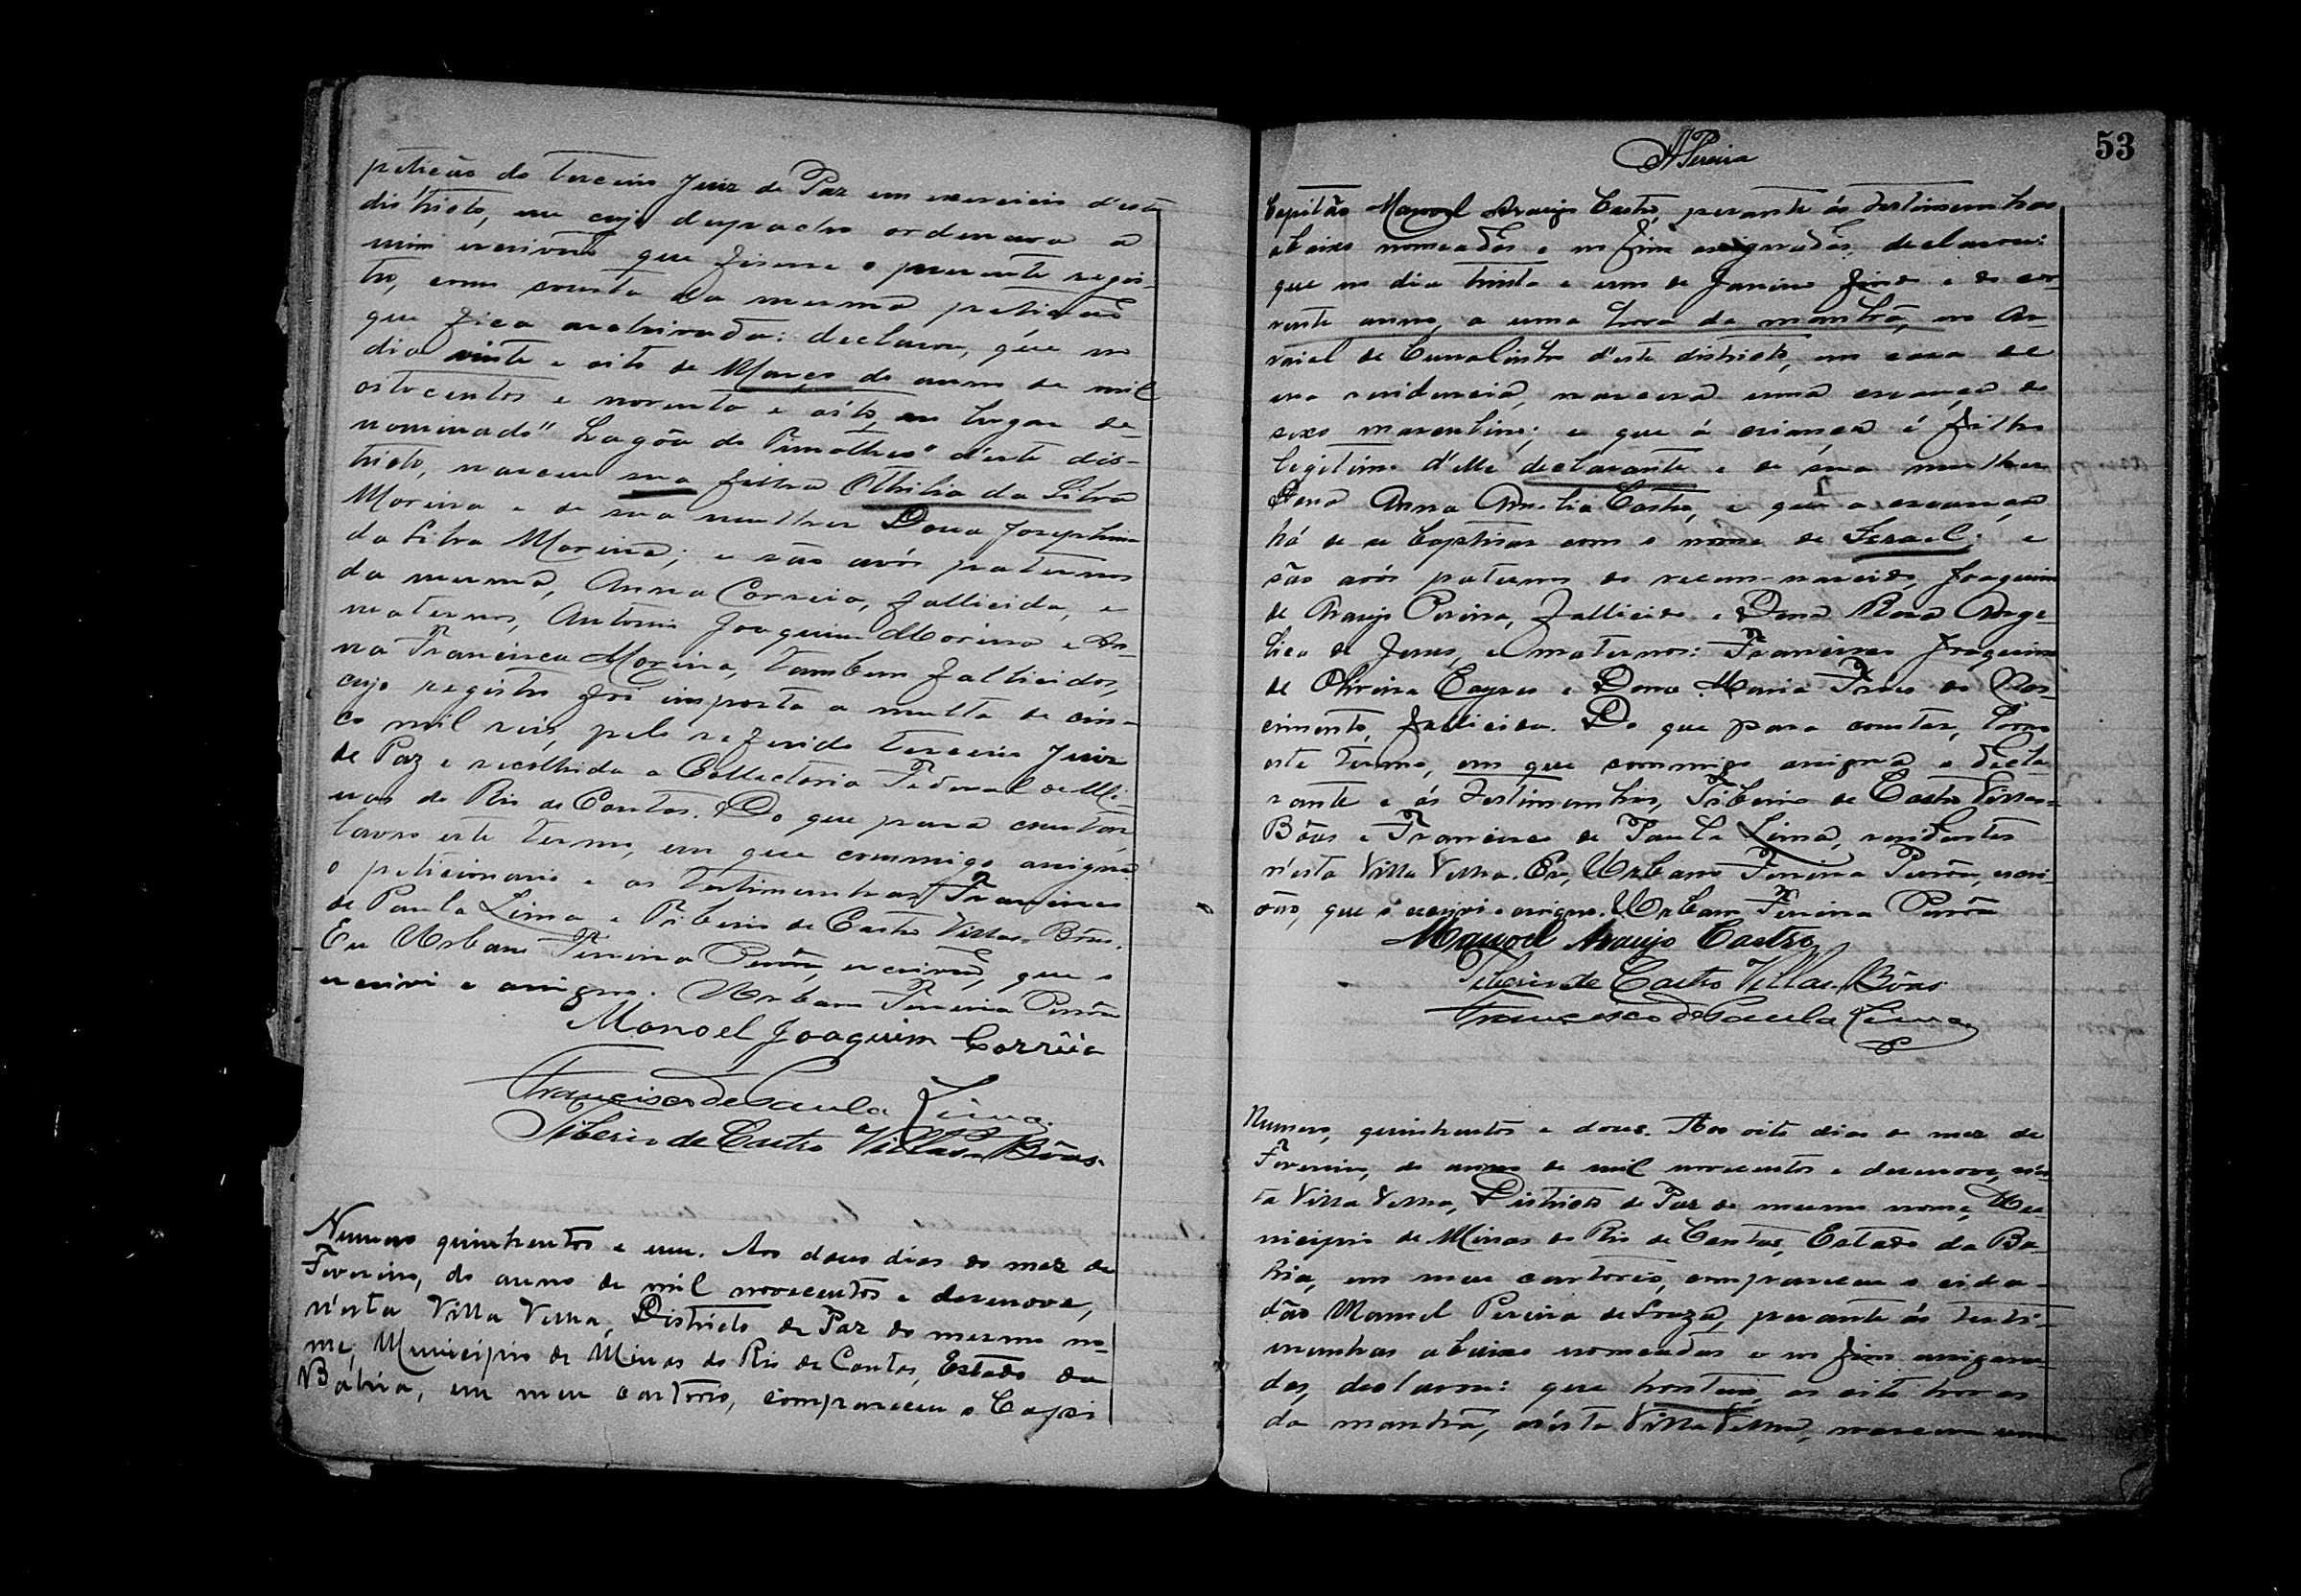 petição do Terceiro Juiz de Paz em exercicio d'este
districto, em cujo despacho ordenara a
mim escrivão que fizesse o presente regis-
tro, como consta da mesma petição
que fica archivada: declarou, que no
dia vinte e oito de Março do anno de mil
oitocentos e noventa e oito, no lugar de-
nominado "Lagôa do Timotheo" d'este dis-
tricto, nasceu sua filha Othilia da Silva
Moreira e de sua mulher Dona Josephina
da Silva Moreira; e são avós paternos
da mesma, Anna Correia, fallicida, e
maternos, Antonio Joaquim Moreira e An-
na Francisca Moreira, tambem fallicidos,
cujo registro foi imposta a multa de cin-
co mil reis, pelo referido terceiro Juiz
de Paz e recolhida a Collectoria Federal de Mi-
nas do Rio de Contas. Do que para constar,
lavro este termo, em que commigo assigna
o peticionario e as testimunhas Francisco
de Paula Lima e Tiberio de Castro Villas-Bôas.
Eu Urbano Ferreira escrivão, que o
escrivi e assigno. Urbano Ferreira
Manoel Joaquim Corrêia
Francisco de Paula Lima
Tiberio de Castro Villas Bôas.
Numero quinhentos e um. Aos dous dias do mez de
Fevereiro, do anno de mil novecentos e desenove,
n'esta Villa Velha, Districto de Paz do mesmo no-
me, Municipio de Minas do Rio de Contas, Estado da
Bahia, em meu cartorio, compareceu o Capi
53
APereira
Capitão Manoel Araujo Castro, perante ás testimunhas
abaixo nomeadas e no fim assignadas, declarou:
que no dia trinta e um de Janeiro findo e do cor-
rente anno, a uma hora da manhã, no Ar-
raial de Curralinho d'este districto, em casa de
sua residencia, nascera uma creança do
sexo masculino; e que á criança é filho
legitimo d'elle declarante e de sua mulher
Dona Anna Amelia Castro, e que a creança
há de se baptisar com o nome de Israel; e
são avós paternos do recem-nascido, Joaquim
de Araujo Pereira, fallicido e Dona Rosa Ange-
lica de Jesus, e maternos: Francisco Joaquim
de Oliveira e Dona Maria do Nas-
cimento, fallicida. Do que para constar, lavro
este termo, em que commigo assigna o decla-
rante e ás testimunhas, Tiberio de Castro Villas-
Bôas e Francisco de Paula Lima, residentes
n'esta Villa Velha. Eu, Urbano Ferreira escri-
vão, que o escrivi e assigno. Urbano Ferreira
Manoel Araujo Castro
Tiberio de Castro Villas Bôas
Francisco de Paula Lima
Numero, quinhentos e dous. Aos oito dias do mez de
Fevereiro, do anno de mil novecentos e desenove, n'es-
ta Villa Velha, Districto de Paz do mesmo nome, Mu-
nicipio de Minas do Rio de Contas, Estado da Ba-
hia, em meu cartorio, compareceu o cida-
dão Manoel Pereira de Souza, perante ás testi-
munhas abaixo nomeadas e no fim assigna-
das, declarou: que hontem, as oito horas
da manhã, n'esta Villa Velha, nascera uma